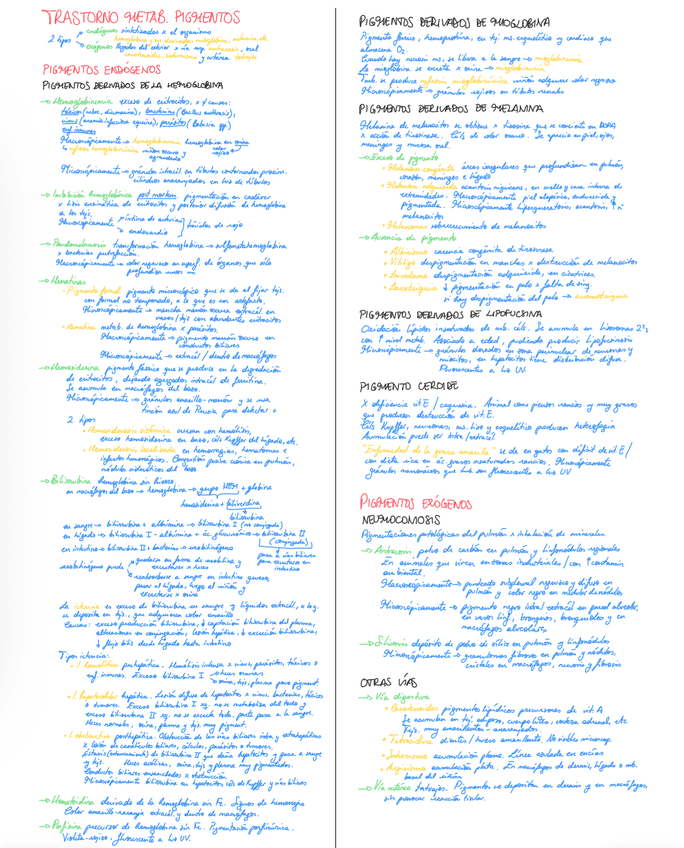 TRASTORNO METAB. PIGMENTOS
2 tipos
endógenos sintetizados x el organismo
hemoglobina y sus derivados, mioglobina, melanina etc
exógenos llegados del exterior x vía resp, oral
y cutánea tatuaje
PIGMENTOS ENDÓGENOS
PIGMENTOS DERIVADOS DE LA HEMOGLOBINA
→ Hemoglobinuria exceso de eritrocitos, x causas:
virus (anemia infecciosa equina), parásitos (Babesia spp)
enf inmunes
Macroscópicamente → hemoglobinuria hemoglobina en orina
color rojizo
riñón oscuro y agrandado
Microscópicamente → gránulos intracel en túbulos contorneados proxim.
cilindros anaranjados en luz de túbulos
→ Imbibición hemoglobínica post mortem, pigmentación en cadáver
x lisis enzimática de eritrocitos y posterior difusión de hemoglobina
a los tej.
Macroscópicamente íntima de arterias
endocardio
teñidos de rojo
→ Pseudomelanosis transformación hemoglobina → sulfometahemoglobina
x bacterias putrefacción.
Macroscópicamente → color negruzco en superf. de órganos, que sólo
profundiza unos mm
→ Hematinas
• Pigmento formol pigmento microscópico que se da al fijar tej.
con formol no tamponado, x lo que es un artefacto.
Microscópicamente → mancha marrón oscura extracel en
vasos/tej con abundantes eritrocitos
• Hematina metab. de hemoglobina x parásitos.
Macroscópicamente → pigmento marrón oscuro en
conductos biliares
Microscópicamente → extracel / dentro de macrófagos
→ Hemosiderina pigmento férrico que se produce en la degradación
de eritrocitos, dejando agregados intracel de ferritina.
Se acumula en macrófagos del bazo.
Microscópicamente → gránulos amarillo-marrón y se usa
tinción azul de Prusia para detectar +
2 tipos
• Hemosiderosis sistémica cursan con hemólisis,
exceso hemosiderina en bazo, céls Kupffer del hígado, etc.
• Hemosiderosis localizada en hemorragias, hematomas e
infartos hemorrágicos. Congestión pasiva crónica en pulmón,
nódulos sideróticos del bazo
→ Bilirrubina hemoglobina sin hierro.
en macrófagos del bazo → hemoglobina → grupo HEM + globina
hemosiderina + biliverdina
bilirrubina
en sangre → bilirrubina + albúmina → bilirrubina I (no conjugada)
en hígado → bilirrubina I - albúmina + ác glucurónico → bilirrubina II
(conjugada)
en intestino → bilirrubina II + bacterias → urobilinógeno
pasa a vías biliares para excretarse en intestino
urobilinógeno puede
quedarse en forma de urobilina y excretarse x heces
reabsorberse a sangre en intestino grueso,
pasar al hígado, luego al riñón y
excretarse x orina
La ictericia es exceso de bilirrubina en sangre y líquidos extracel, x lo q
se deposita en tej, que adquieren color amarillo
Causas: exceso producción bilirrubina, ↓ captación bilirrubina del plasma,
alteraciones en conjugación, lesión hepática, ↓ excreción bilirrubina,
↓ flujo bilis desde hígado hasta intestino
Tipos ictericia:
• I. hemolítica prehepática. Hemólisis intensa x virus, parásitos, tóxicos o
enf inmunes. Exceso bilirrubina I
heces oscuras
orina, tej, plasma poco pigment.
• I. hepatocelular hepática. Lesión difusa de hepatocitos x virus, bacterias, tóxicos
o tumores. Exceso bilirrubina I xq. no se metaboliza del todo y
exceso bilirrubina II xq. no se excreta toda, parte pasa a la sangre.
Heces normales, orina, plasma y tej muy pigment.
• I. obstructiva posthepática. Obstrucción de las vías biliares intra y extrahepáticas
x lesión de canalículos biliares, cálculos, parásitos o tumores.
de bilirrubina II que daña hepatocitos y pasa a sangre
y tej. Heces acólicas, orina, tej y plasma muy pigmentados.
Conductos biliares ensanchados x obstrucción
Microscópicamente bilirrubina en hepatocitos, céls de Kupffer y vías biliares
→ Hematoidina derivado de la hemoglobina sin Fe. Signos de hemorragia
Color amarillo-naranja extracel y dentro de macrófagos.
→ Porfirina precursor de hemoglobina sin Fe. Pigmentación porfirínica.
Violeta-rojizo, fluorescente a luz UV.
PIGMENTOS DERIVADOS DE MIOGLOBINA
Pigmento ferroso, hemoproteína, en tej ms. esquelético y cardíaco que
almacena O2.
Cuando hay necrosis ms, se libera a la sangre → mioglobinemia
La mioglobina se excreta x orina → mioglobinuria
Tamb. se produce nefrosis mioglobinúrica riñones adquieren color negruzco
Microscópicamente → gránulos rojizos en túbulos renales
PIGMENTOS DERIVADOS DE MELANINA
Melanina de melanocitos se obtiene x tirosina que se convierte en DOPA
x acción de tirosinasa. Céls de color marrón. Se aprecia en piel, ojos,
meninges y mucosa oral.
→ Exceso de pigmento
• Melanosis congénita áreas irregulares que profundizan en pulmón,
corazón, meninges e hígado
• Melanosis adquirida acantosis nigricans, en axilas y cara interna de
extremidades. Macroscópicamente piel alopécica, endurecida y
pigmentada. Microscópicamente hiperqueratosis, acantosis, ↑ nº
melanocitos
• Melanomas sobrecrecimiento de melanocitos
→ Ausencia de pigmento
• Albinismo carencia congénita de tirosinasa
• Vitíligo despigmentación en manchas x destrucción de melanocitos
• Leucoderma despigmentación adquirida, en cicatrices.
• Leucotriquia ↓ pigmentación en pelo x falta de
si hay despigmentación del pelo →
PIGMENTOS DERIVADOS DE LIPOFUCSINA
Oxidación lípidos insaturados de mb. cels. Se acumula en lisosomas 2ºs
con ↑ nivel metab. Asociado a edad, pudiendo producir lipofuscinosis
Microscópicamente → gránulos dorados en zona perinuclear de neuronas y
miocitos, en hepatocitos tiene distribución difusa.
Fluorescente a luz UV.
PIGMENTO CEROIDE
X deficiencia vit.E / caquexia. Animal come piensos rancios y muy grasos
que producen destrucción de vit.E.
Céls Kupffer, neuronas, ms. liso y esquelético producen
Acumulación puede ser intra/extracel
"Enfermedad de la grasa amarilla" se da en gatos con déficit de vit.E /
con dieta rica en ác grasos insaturados rancios. Microscópicamente
gránulos marronáceos que tamb son fluorescentes a luz UV
PIGMENTOS EXÓGENOS
NEUMOCONIOSIS
Pigmentaciones patológicas del pulmón x inhalación de minerales
→ Antracosis polvo de carbón en pulmón y linfonódulos regionales
En animales que viven en zonas industriales / con ↑ contamin
ambiental.
Macroscópicamente → punteado subpleural negruzco y difuso en
pulmón y color negro en médula de nódulos
Microscópicamente → pigmento negro extracel en pared alveolar,
en vasos linf, bronquios, bronquiolos y en
macrófagos alveolares
→ Silicosis depósito de polvo de sílice en pulmón y linfonódulos
Microscópicamente → granulomas fibrosos en pulmón y nódulos,
cristales en macrófagos, necrosis y fibrosis
OTRAS VÍAS
→ Vía digestiva
• Carotenoides pigmentos lipídicos precursores de vit A
Se acumulan en tej adiposo, cuerpo lúteo, corteza adrenal, etc
Tejs. muy amarillentos - anaranjados.
• Tetraciclina dientes/huesos amarillentos. No visible microscop.
• Saturnismo acumulación plomo. Línea azulada en encías
• Argirismo acumulación plata. En macrófagos de dermis, hígado o mb.
basal del riñón
→ Vía cutánea tatuajes. Pigmentos se depositan en dermis y en macrófagos,
sin provocar reacción tisular.